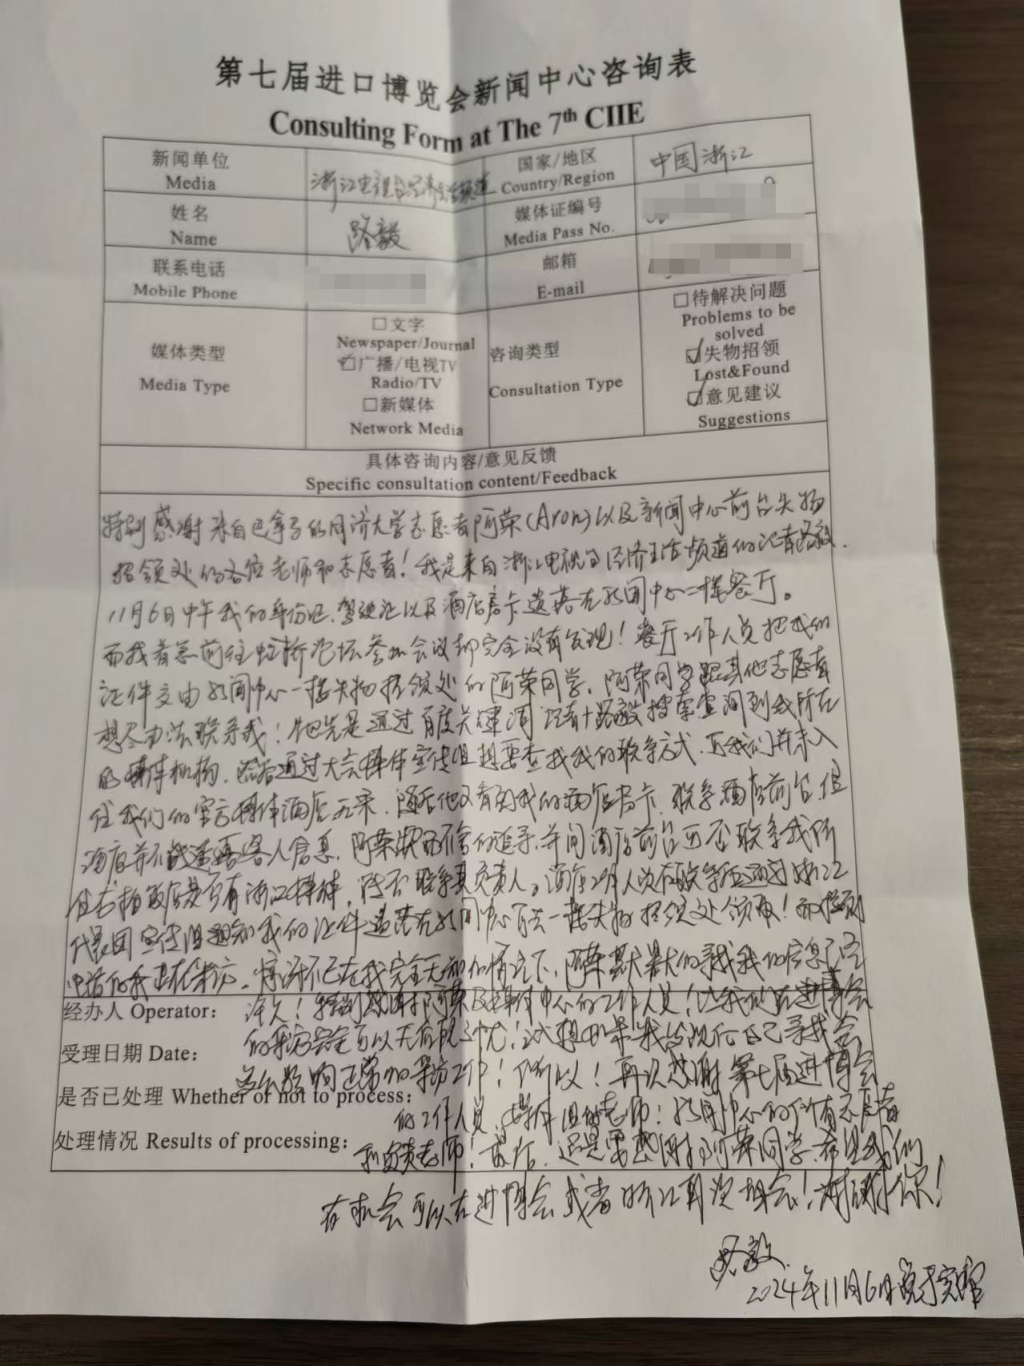 第七届进口博览会新闻中心咨询表
Consulting Form at The 7th CIIE
新闻单位
Media
浙江电视台经济生活频道
国家/地区
Country/Region
中国浙江
姓名
Name
路毅
媒体证编号
Media Pass No.
联系电话
Mobile Phone
邮箱
E-mail
媒体类型
Media Type
□文字
Newspaper/Journal
☑广播/电视TV
Radio/TV
□新媒体
Network Media
咨询类型
Consultation Type
□待解决问题
Problems to be
solved
☑失物招领
Lost&Found
☑意见建议
Suggestions
具体咨询内容/意见反馈
Specific consultation content/Feedback
特别感谢来自巴拿马的同济大学志愿者阿荣(Aron)以及新闻中心前台失物
招领处的各位老师和志愿者!我是来自浙江电视台经济生活频道的记者路毅.
11月6日中午我的身份证、驾驶证以及酒店房卡遗落在新闻中心二楼餐厅。
而我着急前往虹桥论坛参加会议却完全没有发现!餐厅工作人员把我的
证件交由新闻中心一楼失物招领处的阿荣同学,阿荣同学跟其他志愿者
想尽办法联系我!他先是通过百度关键词记者+路毅搜索查询到我所在
的媒体机构,然后通过大会媒体宣传组想要查找我的联系方式,而我们并未入
住我们的官方媒体酒店 随后他又看到我的酒店房卡,联系酒店前台,但
酒店并不能透露客人信息,阿荣锲而不舍的追寻,并问酒店前台可否联系我所
住 酒店是否有浙江媒体,能否联系其负责人。酒店工作人员在联系后通过浙江
代表团宣传组通知我的证件遗落在新闻中心 一楼失物招领处领取!而接到
电话的我正在采访,惊讶不已在我完全不知情之下,阿荣默默的寻找我的信息已经
经办人 Operator:
许久!特别感谢阿荣及媒体中心的工作人员!让我们在进博会
受理日期 Date:
的采访完全可以无后顾之忧!试想如果我发现后自己寻找会
是否已处理 Whether of not to process:
影响正常的采访工作!所以!再次感谢第七届进博会
处理情况 Results of processing:
的工作人员,媒体组的老师!新闻中心的所有志愿者
和 老师!最后,还是要感谢阿荣同学,希望我们
有机会可以在进博会或者浙江再次相会!谢谢你!
路毅
2024年11月6日晚于